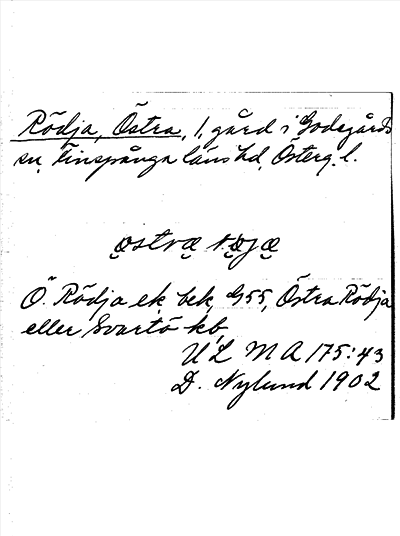 Rödja, Östra, 1, gård i Godegårds
sn, Finspånga läns hd, Österg. l.
Ö. Rödja ek, bek, G55, Östra Rödja
eller Svartö kb,
ULMA 175:43
D. Nylund 1902